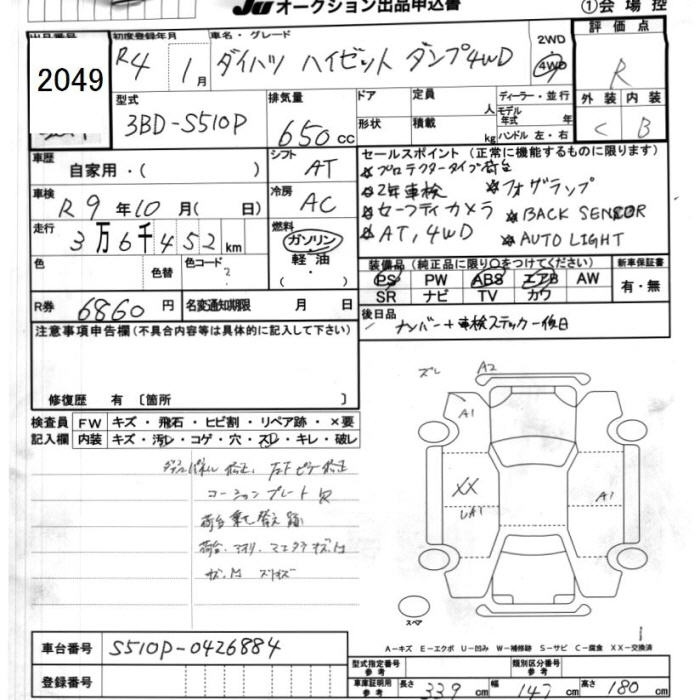 JU オークション出品申込書
①会場控
出品番号
初度登録年月
車名・グレード
評価点
2049
R4 1月
ダイハツ ハイゼット ダンプ4WD
2WD
4WD
R
型式
3BD-S510P
排気量
650 cc
ドア
定員
人
形状
積載
kg
ディーラー・並行
モデル
年式
年
ハンドル 左・右
外装 内装
C B
車歴
自家用・( )
シフト
AT
車検
R9年10月( 日)
冷房
AC
走行
3万6千452km
燃料
ガソリン
軽油
( )
色
色替
色コード
R券
6860円
名変通知期限 月 日
セールスポイント(正常に機能するものに限ります)
プロテクタータイプ荷台
2年車検
フォグランプ
セーフティカメラ
BACK SENSOR
AT,4WD
AUTO LIGHT
装備品(純正品に限り〇をつけてください)
PS PW ABS エアB AW
SR ナビ TV カワ
新車保証書
有・無
後日品
ナンバー+車検ステッカー後日
注意事項申告欄(不具合内容等は具体的に記入して下さい)
修復歴 有〔箇所 〕
検査員
記入欄
FW キズ・飛石・ヒビ割・リペア跡・×要
内装 キズ・汚レ・コゲ・穴・スレ・キレ・破レ
コーションプレート
荷台
ズレ
A2
A1
XX
A1
スペア
車台番号
S510P-0426884
登録番号
A-キズ E-エクボ U-凹み W-補修跡 S-サビ C-腐食 XX-交換済
型式指定番号
参考
類別区分番号
参考
車庫証明用
参考
長さ 339cm
幅 147cm
高さ 180cm